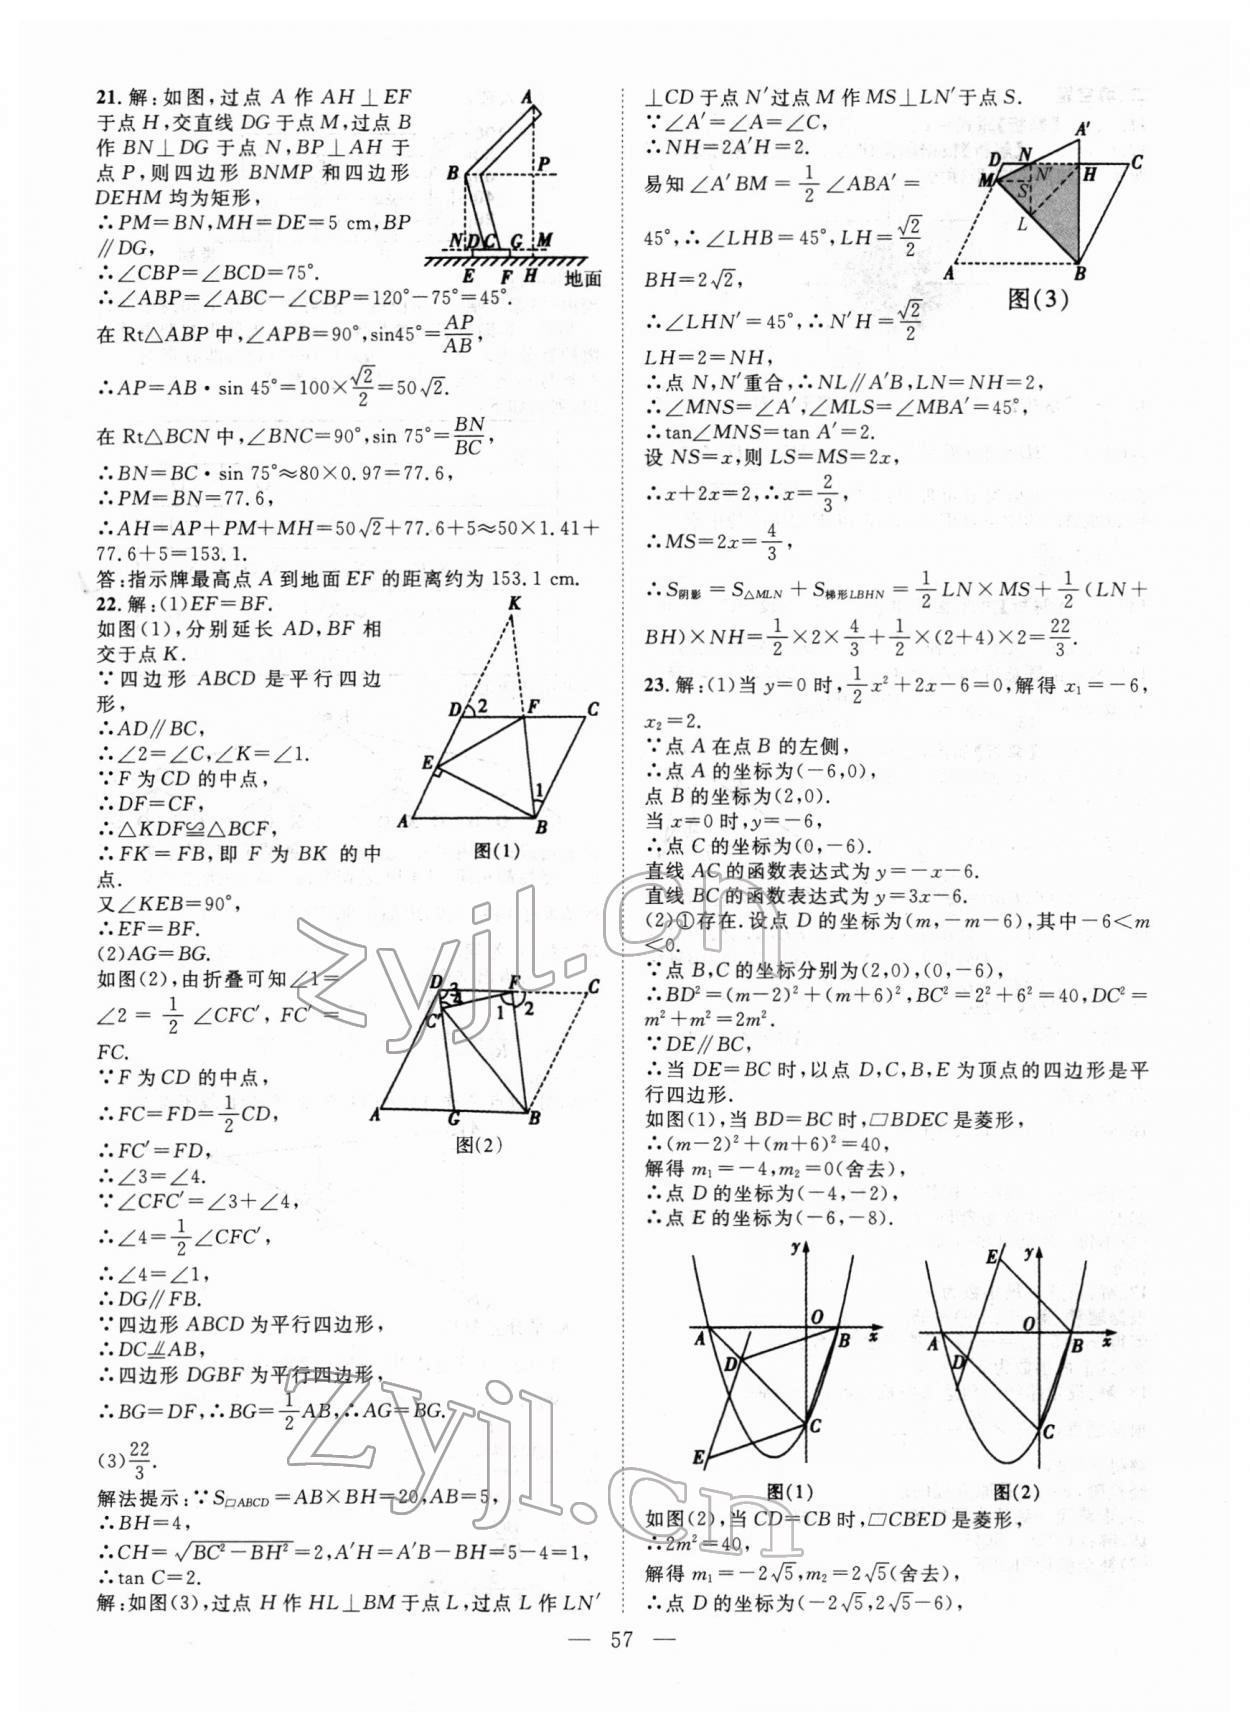 21.解:如图,过点 A 作 AH⊥EF
于点 H,交直线 DG 于点 M,过点 B
作 BN⊥DG 于点 N,BP⊥AH 于
点 P,则四边形 BNMP 和四边形
DEHM 均为矩形,
∴PM=BN,MH=DE=5 cm,BP
∥DG,
∴∠CBP=∠BCD=75°.
∴∠ABP=∠ABC-∠CBP=120°-75°=45°.
在 Rt△ABP 中,∠APB=90°,sin45°=AP/AB,
∴AP=AB·sin 45°=100×√2/2=50√2.
在 Rt△BCN 中,∠BNC=90°,sin 75°=BN/BC,
∴BN=BC·sin 75°≈80×0.97=77.6,
∴PM=BN=77.6,
∴AH=AP+PM+MH=50√2+77.6+5≈50×1.41+
77.6+5=153.1.
答:指示牌最高点 A 到地面 EF 的距离约为 153.1 cm.
A
B
P
N D C G M
E F H 地面
22.解:(1)EF=BF.
如图(1),分别延长 AD,BF 相
交于点 K.
∵四边形 ABCD 是平行四边
形,
∴AD∥BC,
∴∠2=∠C,∠K=∠1.
∵F 为 CD 的中点,
∴DF=CF,
∴△KDF≌△BCF,
∴FK=FB,即 F 为 BK 的中
点.
又∠KEB=90°,
∴EF=BF.
K
D 2 F C
E
1
A B
图(1)
(2)AG=BG.
如图(2),由折叠可知∠1=
∠2=1/2∠CFC′,FC′=
FC.
∵F 为 CD 的中点,
∴FC=FD=1/2CD,
∴FC′=FD,
∴∠3=∠4.
∵∠CFC′=∠3+∠4,
∴∠4=1/2∠CFC′,
∴∠4=∠1,
∴DG∥FB.
∵四边形 ABCD 为平行四边形,
∴DC⫽AB,
∴四边形 DGBF 为平行四边形,
∴BG=DF,∴BG=1/2AB,∴AG=BG.
D 3 F C
4
C′ 1 2
A G B
图(2)
(3)22/3.
解法提示:∵S▱ABCD=AB×BH=20,AB=5,
∴BH=4,
∴CH=√(BC²-BH²)=2,A′H=A′B-BH=5-4=1,
∴tan C=2.
解:如图(3),过点 H 作 HL⊥BM于点L,过点 L 作 LN′
⊥CD 于点 N′过点 M 作 MS⊥LN′于点 S.
∵∠A′=∠A=∠C,
∴NH=2A′H=2.
易知∠A′BM=1/2∠ABA′=
45°,∴∠LHB=45°,LH=√2/2
BH=2√2,
∴∠LHN′=45°,∴N′H=√2/2
LH=2=NH,
∴点 N,N′重合,∴NL∥A′B,LN=NH=2,
∴∠MNS=∠A′,∠MLS=∠MBA′=45°,
∴tan∠MNS=tan A′=2.
设 NS=x,则 LS=MS=2x,
∴x+2x=2,∴x=2/3,
∴MS=2x=4/3,
∴S阴影=S△MLN+S梯形LBHN=1/2LN×MS+1/2(LN+
BH)×NH=1/2×2×4/3+1/2×(2+4)×2=22/3.
A′
D N C
M N′ H
S
L
A B
图(3)
23.解:(1)当 y=0 时,1/2x²+2x-6=0,解得 x₁=-6,
x₂=2.
∵点 A 在点 B 的左侧,
∴点 A 的坐标为(-6,0),
点 B 的坐标为(2,0).
当 x=0 时,y=-6,
∴点 C 的坐标为(0,-6).
直线 AC 的函数表达式为 y=-x-6.
直线 BC 的函数表达式为 y=3x-6.
(2)①存在.设点 D 的坐标为(m,-m-6),其中-6<m
<0.
∵点 B,C 的坐标分别为(2,0),(0,-6),
∴BD²=(m-2)²+(m+6)²,BC²=2²+6²=40,DC²=
m²+m²=2m².
∵DE∥BC,
∴当 DE=BC 时,以点 D,C,B,E 为顶点的四边形是平
行四边形.
如图(1),当 BD=BC 时,▱BDEC 是菱形,
∴(m-2)²+(m+6)²=40,
解得 m₁=-4,m₂=0(舍去),
∴点 D 的坐标为(-4,-2),
∴点 E 的坐标为(-6,-8).
y
O
A B x
D
C
E
图(1)
y
E
O
A B x
D
C
图(2)
如图(2),当 CD=CB 时,▱CBED 是菱形,
∴2m²=40,
解得 m₁=-2√5,m₂=2√5(舍去),
∴点 D 的坐标为(-2√5,2√5-6),
— 57 —
zyjl.cn
zyjl.cn